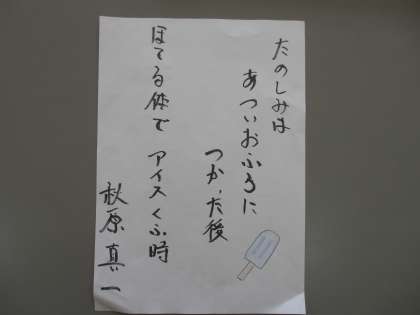 たのしみは
あついおふろに
つかった後
ほてる体で アイスくふ時
秋原真一